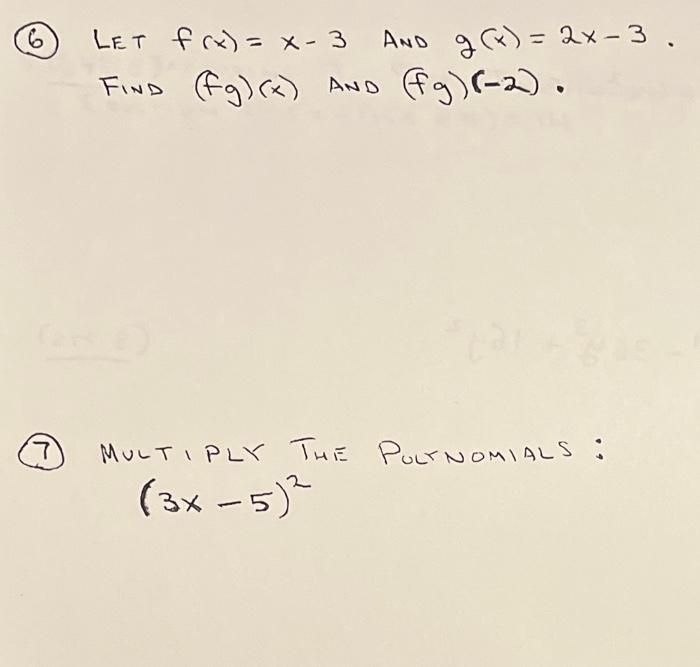 6 LET f(x) = x - 3 AND g(x) = 2x - 3 .
FIND (fg)(x) AND (fg)(-2) .
7 MULTIPLY THE POLYNOMIALS :
(3x - 5)²